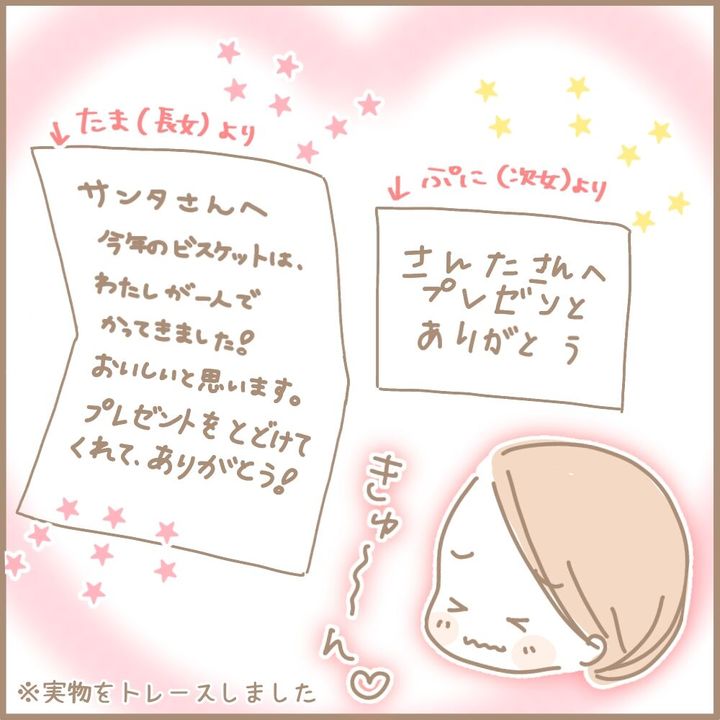 たま(長女)より
サンタさんへ
今年のビスケットは、
わたしが一人で
かってきました!
おいしいと思います。
プレゼントをとどけて
くれて、ありがとう!
ぷに(次女)より
さんたさんへ
プレゼンと
ありがとう
きゅ〜〜ん♡
※実物をトレースしました